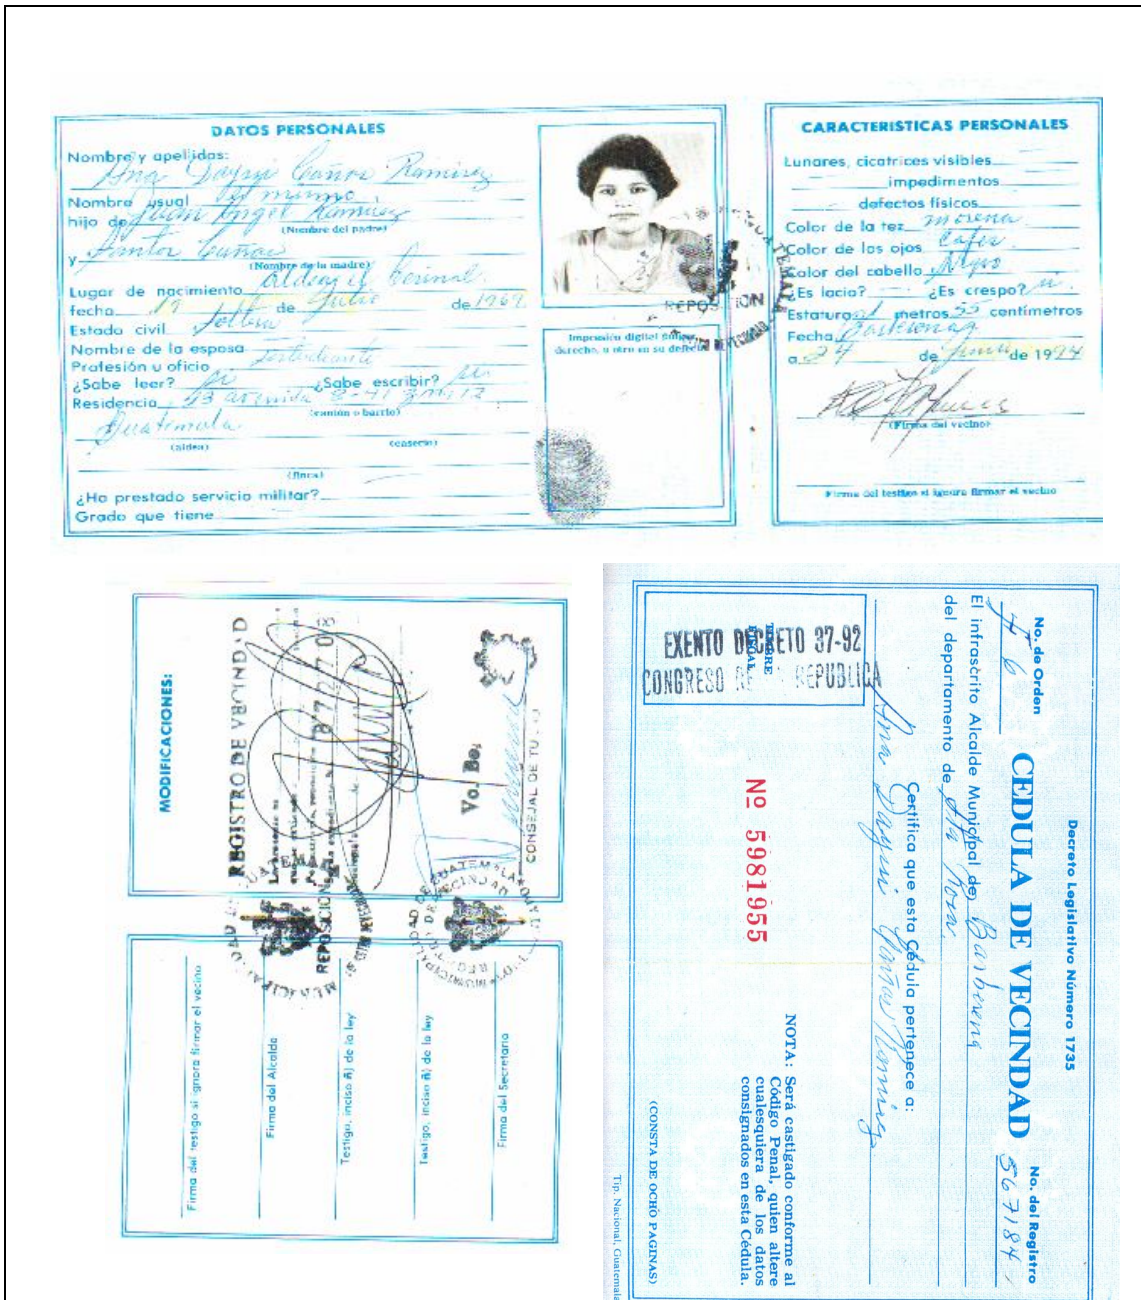 DATOS PERSONALES
Nombre y apellidos:
Ana Dayni Cañas Ramirez
Nombre usual el mismo
hijo de Juan Angel Ramirez
(Nombre del padre)
y Santos Cañas
(Nombre de la madre)
Lugar de nacimiento Aldea el Cerinal
fecha 19 de Julio de 1969
Estado civil Soltera
Nombre de la esposa
Profesión u oficio Estudiante
¿Sabe leer? si ¿Sabe escribir? si
Residencia 23 avenida 8-41 zona 12
(cantón o barrio)
Guatemala
(aldea) (caserío)
(finca)
¿Ha prestado servicio militar?
Grado que tiene
REPOSICION
Impresión digital pulgar
derecho, u otro en su defecto
CARACTERISTICAS PERSONALES
Lunares, cicatrices visibles
impedimentos
defectos físicos
Color de la tez morena
Color de los ojos Cafés
Color del cabello Negro
¿Es lacio? ¿Es crespo? si
Estatura 1 metros 55 centímetros
Fecha Barberena
a 24 de Junio de 1994
(Firma del vecino)
Firma del testigo si ignora firmar el vecino
MODIFICACIONES:
REGISTRO DE VECINDAD
Vo. Bo.
CONSEJAL DE TURNO
REPOSICION
MUNICIPALIDAD DE GUATEMALA
Firma del testigo si ignora firmar el vecino
Firma del Alcalde
Testigo, inciso ñ) de la ley
Testigo, inciso ñ) de la ley
Firma del Secretario
Decreto Legislativo Número 1735
No. de Orden CEDULA DE VECINDAD No. del Registro
567184
El infrascrito Alcalde Municipal de Barberena
del departamento de Sta Rosa
Certifica que esta Cédula pertenece a:
Ana Dayni Cañas Ramirez
TIMBRE
FISCAL
EXENTO DECRETO 37-92
CONGRESO REPUBLICA
Nº 5981955
NOTA: Será castigado conforme al
Código Penal, quien altere
cualesquiera de los datos
consignados en esta Cédula.
(CONSTA DE OCHO PAGINAS)
Tip. Nacional, Guatemala